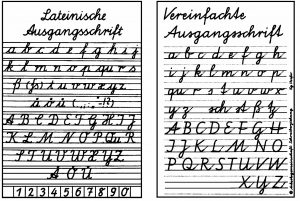 Lateinische
Ausgangsschrift
a b c d e f g h i j
k l m n o p qu r s
ß (fs) t u v w x y z
ä ö ü (.,:;„-!?)
A B C D E F G H I J
K L M N O P Qu R
S T U V W X Y Z
Ä Ö Ü
1 2 3 4 5 6 7 8 9 0
Vereinfachte
Ausgangsschrift
a b c d e f g h
i j k l m n o p
qu r s t u v w x
y z sch St ß tz
A B C D E F G H
I J K L M N O
P Q R S T U V W
X Y Z